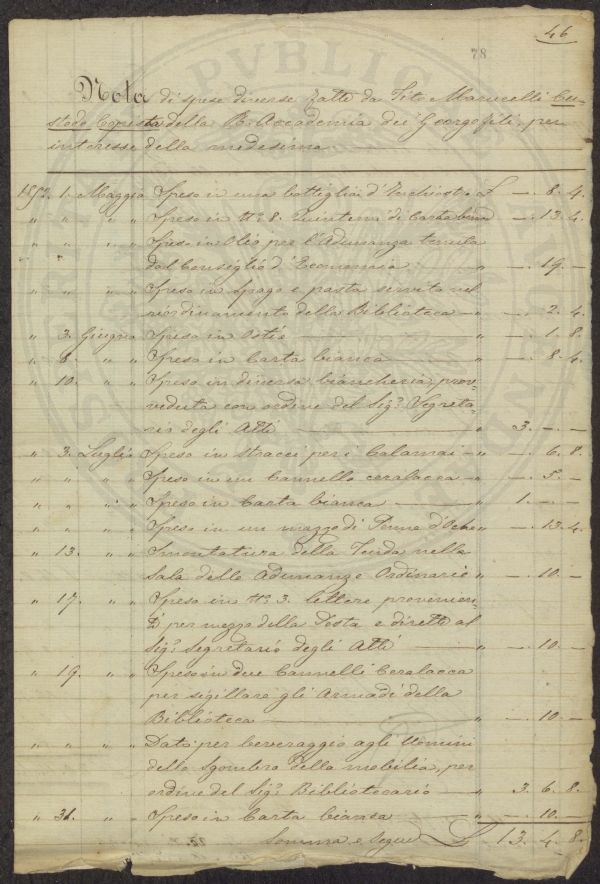 46
78
Nota di spese diverse fatte da Tito Marucelli Cu-
stode Copista della R. Accademia dei Georgofili per
interesse della medesima
1. Maggio Speso in una bottiglia d'Inchiostro £ —. 8. 4.
" " " " Speso in N.° 8. Quinterni di Carta —. 13. 4.
" " " " Speso in Olio per l'Adunanza tenuta
dal Consiglio d'Economia " —. 19. —
" " " " Speso in Spago e pasta servita nel
riordinamento della Biblioteca " —. 2. 4.
" 3. Giugno Speso in Ostie " —. 1. 8.
" 8. " " Speso in Carta bianca " —. 8. 4.
" 10. " " Speso in diversa biancheria, prov-
veduta con ordine del Sig.r Segreta-
rio degli Atti " 3. —. —
" 3. Luglio Speso in stracci per i Calamai " —. 6. 8.
" " " " Speso in un Cannello ceralacca " —. 5. —
" " " " Speso in Carta bianca " 1. —. —
" " " " Speso in un mazzo di Penne d'Oche " —. 13. 4.
" 13. " " Smontatura della Tenda nella
Sala delle Adunanze Ordinarie " —. 10. —
" 17. " " Speso in N.° 3. lettere provenien-
ti per mezzo della Posta e dirette al
Sig.r Segretario degli Atti " —. 10. —
" 19. " " Speso in due Cannelli Ceralacca
per sigillare gli Armadi della
Biblioteca " —. 10. —
" " " " Dato per beveraggio agli Uomini
dello Sgombro della mobilia, per
ordine del Sig.r Bibliotecario " 3. 6. 8.
" 31. " " Speso in Carta bianca " —. 10. —
Somma e Segue £ 13. 4. 8.